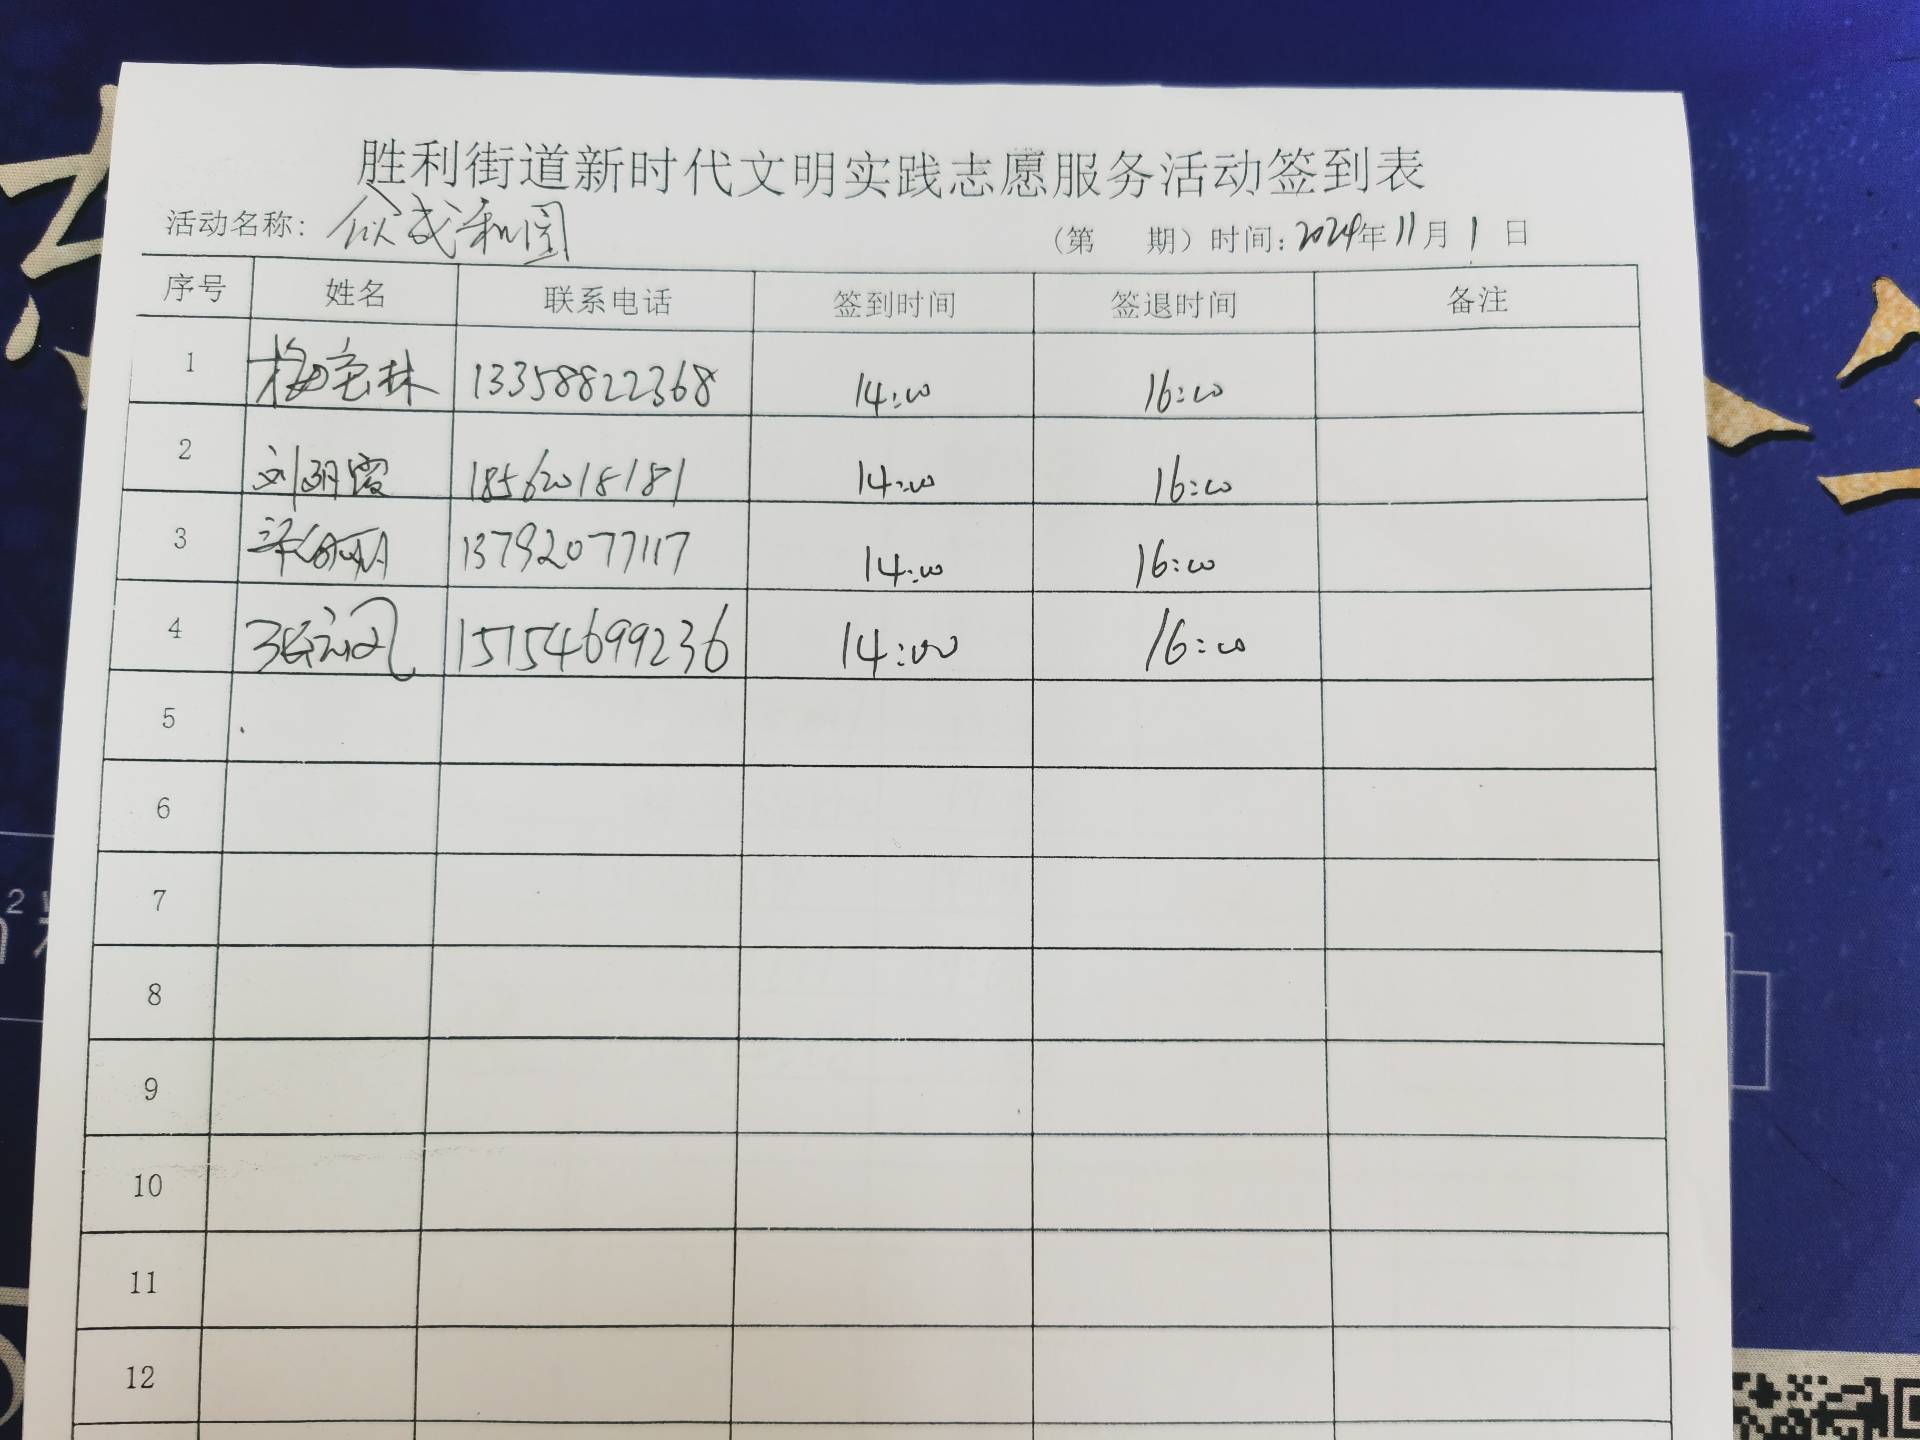 胜利街道新时代文明实践志愿服务活动签到表
活动名称: 众成和园 (第 期) 时间: 2024年11月1日
序号 姓名 联系电话 签到时间 签退时间 备注
1 梅宝林 13358822368 14:00 16:00
2 刘明霞 18562018181 14:00 16:00
3 13792077117 14:00 16:00
4 张 风 15154699236 14:00 16:00
5
6
7
8
9
10
11
12